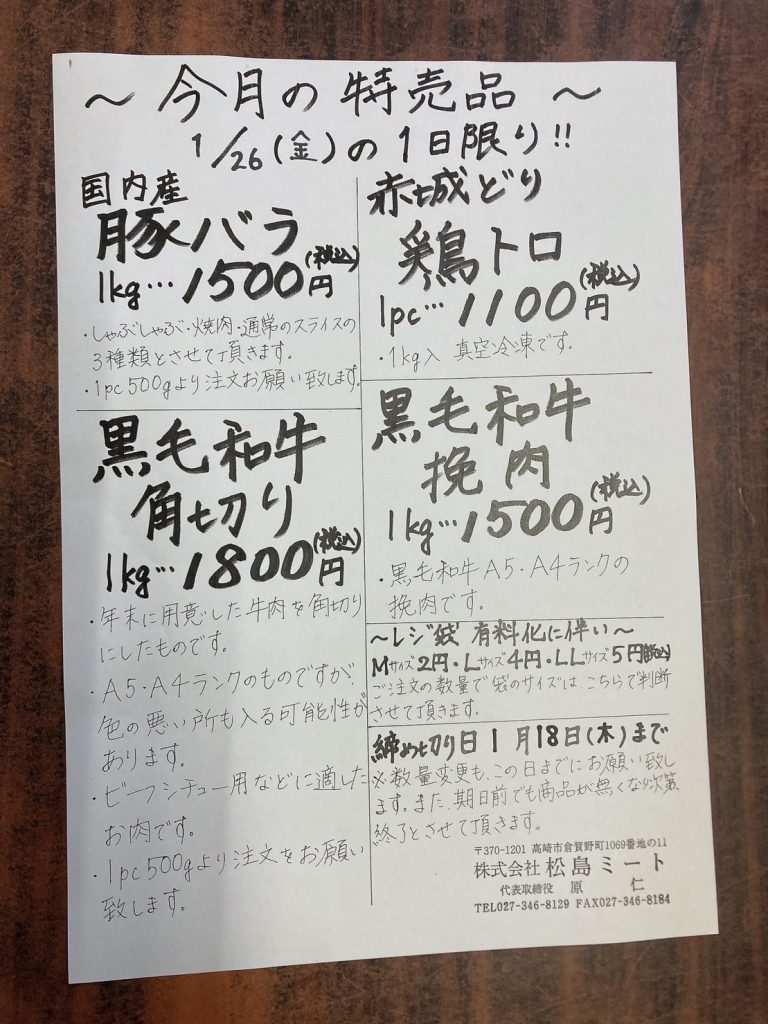 〜今月の特売品〜
1/26(金)の1日限り!!
国内産
豚バラ
1kg…1500円(税込)
・しゃぶしゃぶ・焼肉・通常のスライスの
3種類とさせて頂きます。
・1pc500gより注文お願い致します。
赤城どり
鶏トロ
1pc…1100円(税込)
・1kg入 真空冷凍です。
黒毛和牛
角切り
1kg…1800円(税込)
・年末に用意した牛肉を角切り
にしたものです。
・A5・A4ランクのものですが、
色の悪い所も入る可能性が
あります。
・ビーフシチュー用などに適した
お肉です。
・1pc500gより注文をお願い
致します。
黒毛和牛
挽肉
1kg…1500円(税込)
・黒毛和牛A5・A4ランクの
挽肉です。
〜レジ袋 有料化に伴い〜
Mサイズ2円・Lサイズ4円・LLサイズ5円(税込)
ご注文の数量で袋のサイズは、こちらで判断
させて頂きます。
締め切り日1月18日(木)まで
※数量変更も、この日までにお願い致し
ます。また、期日前でも商品が無くなり次第
終了とさせて頂きます。
〒370-1201 高崎市倉賀野町1069番地の11
株式会社 松島ミート
代表取締役 原 仁
TEL027-346-8129 FAX027-346-8184